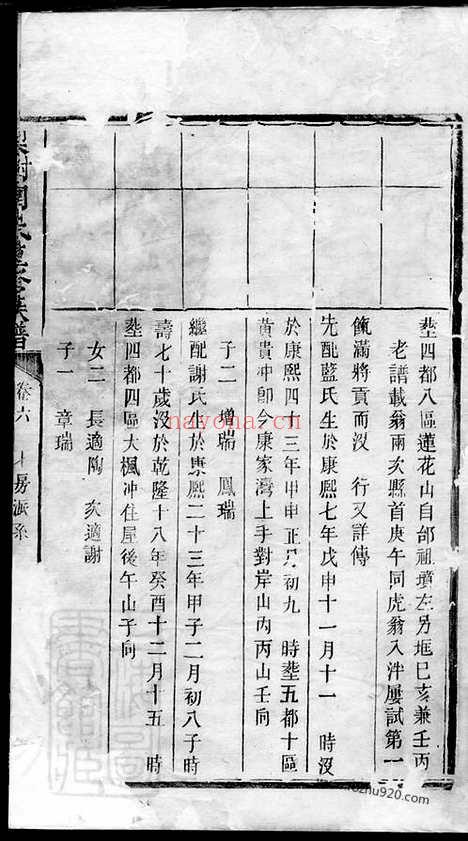 塟四都八區蓮花山自邰祖墳左另堆巳亥兼壬丙
老譜載翁兩次縣首庚午同虎翁入泮屢試第一
餼滿將貢而沒　行又詳傳
先配藍氏生於康熙七年戊申十一月十一　時沒
於康熙四十三年甲申正月初九　時塟五都十區
黃貴冲卽今康家灣上手對岸山內丙山壬向
子二　增瑞　鳳瑞
繼配謝氏生於康熙二十三年甲子二月初八子時
壽七十歲沒於乾隆十八年癸酉十二月十五　時
塟四都四區大楓冲住屋後午山子向
女二　長適陶　次適謝
子一　章瑞
氏重修族譜
卷六
房派系
nayona.cn
zhu920.com